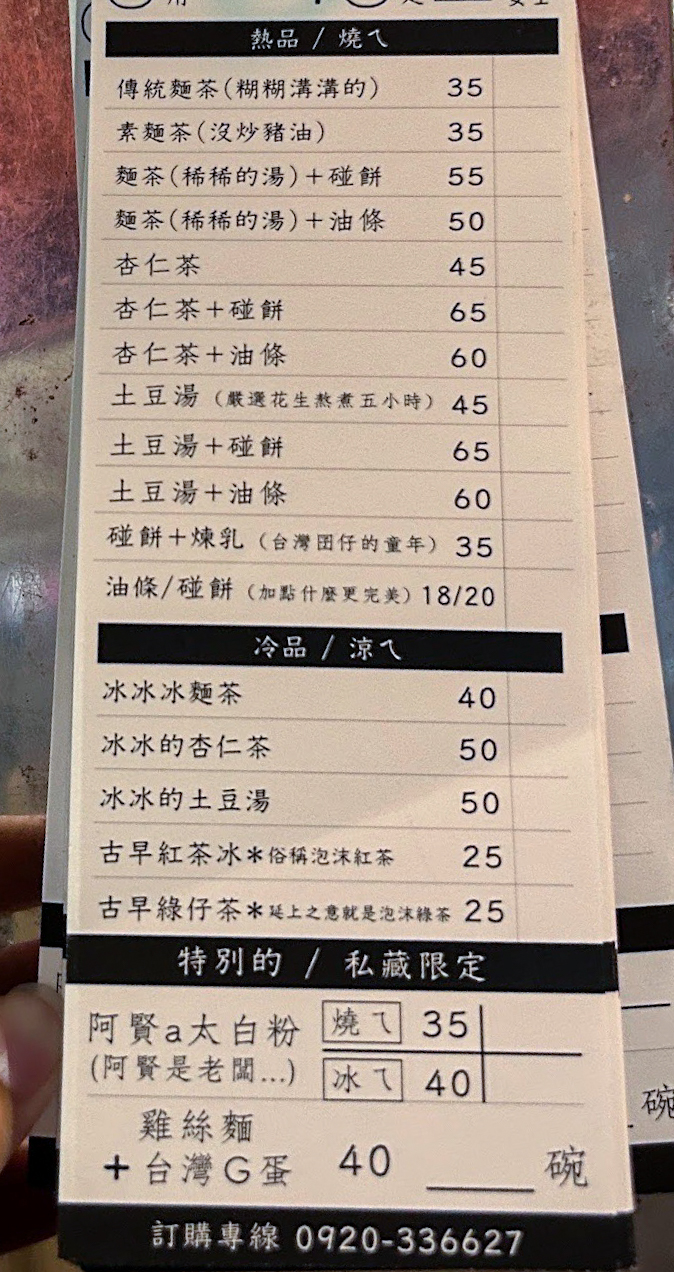 熱品 / 燒ㄟ
傳統麵茶(糊糊溝溝的) 35
素麵茶(沒炒豬油) 35
麵茶(稀稀的湯)+碰餅 55
麵茶(稀稀的湯)+油條 50
杏仁茶 45
杏仁茶+碰餅 65
杏仁茶+油條 60
土豆湯 (嚴選花生熬煮五小時) 45
土豆湯+碰餅 65
土豆湯+油條 60
碰餅+煉乳 (台灣囝仔的童年) 35
油條/碰餅 (加點什麼更完美) 18/20
冷品 / 涼ㄟ
冰冰冰麵茶 40
冰冰的杏仁茶 50
冰冰的土豆湯 50
古早紅茶冰*俗稱泡沫紅茶 25
古早綠仔茶*延上之意就是泡沫綠茶 25
特別的 / 私藏限定
阿賢a太白粉 燒ㄟ 35
(阿賢是老闆...) 冰ㄟ 40
雞絲麵
+台灣G蛋 40 ____碗
訂購專線 0920-336627
碗